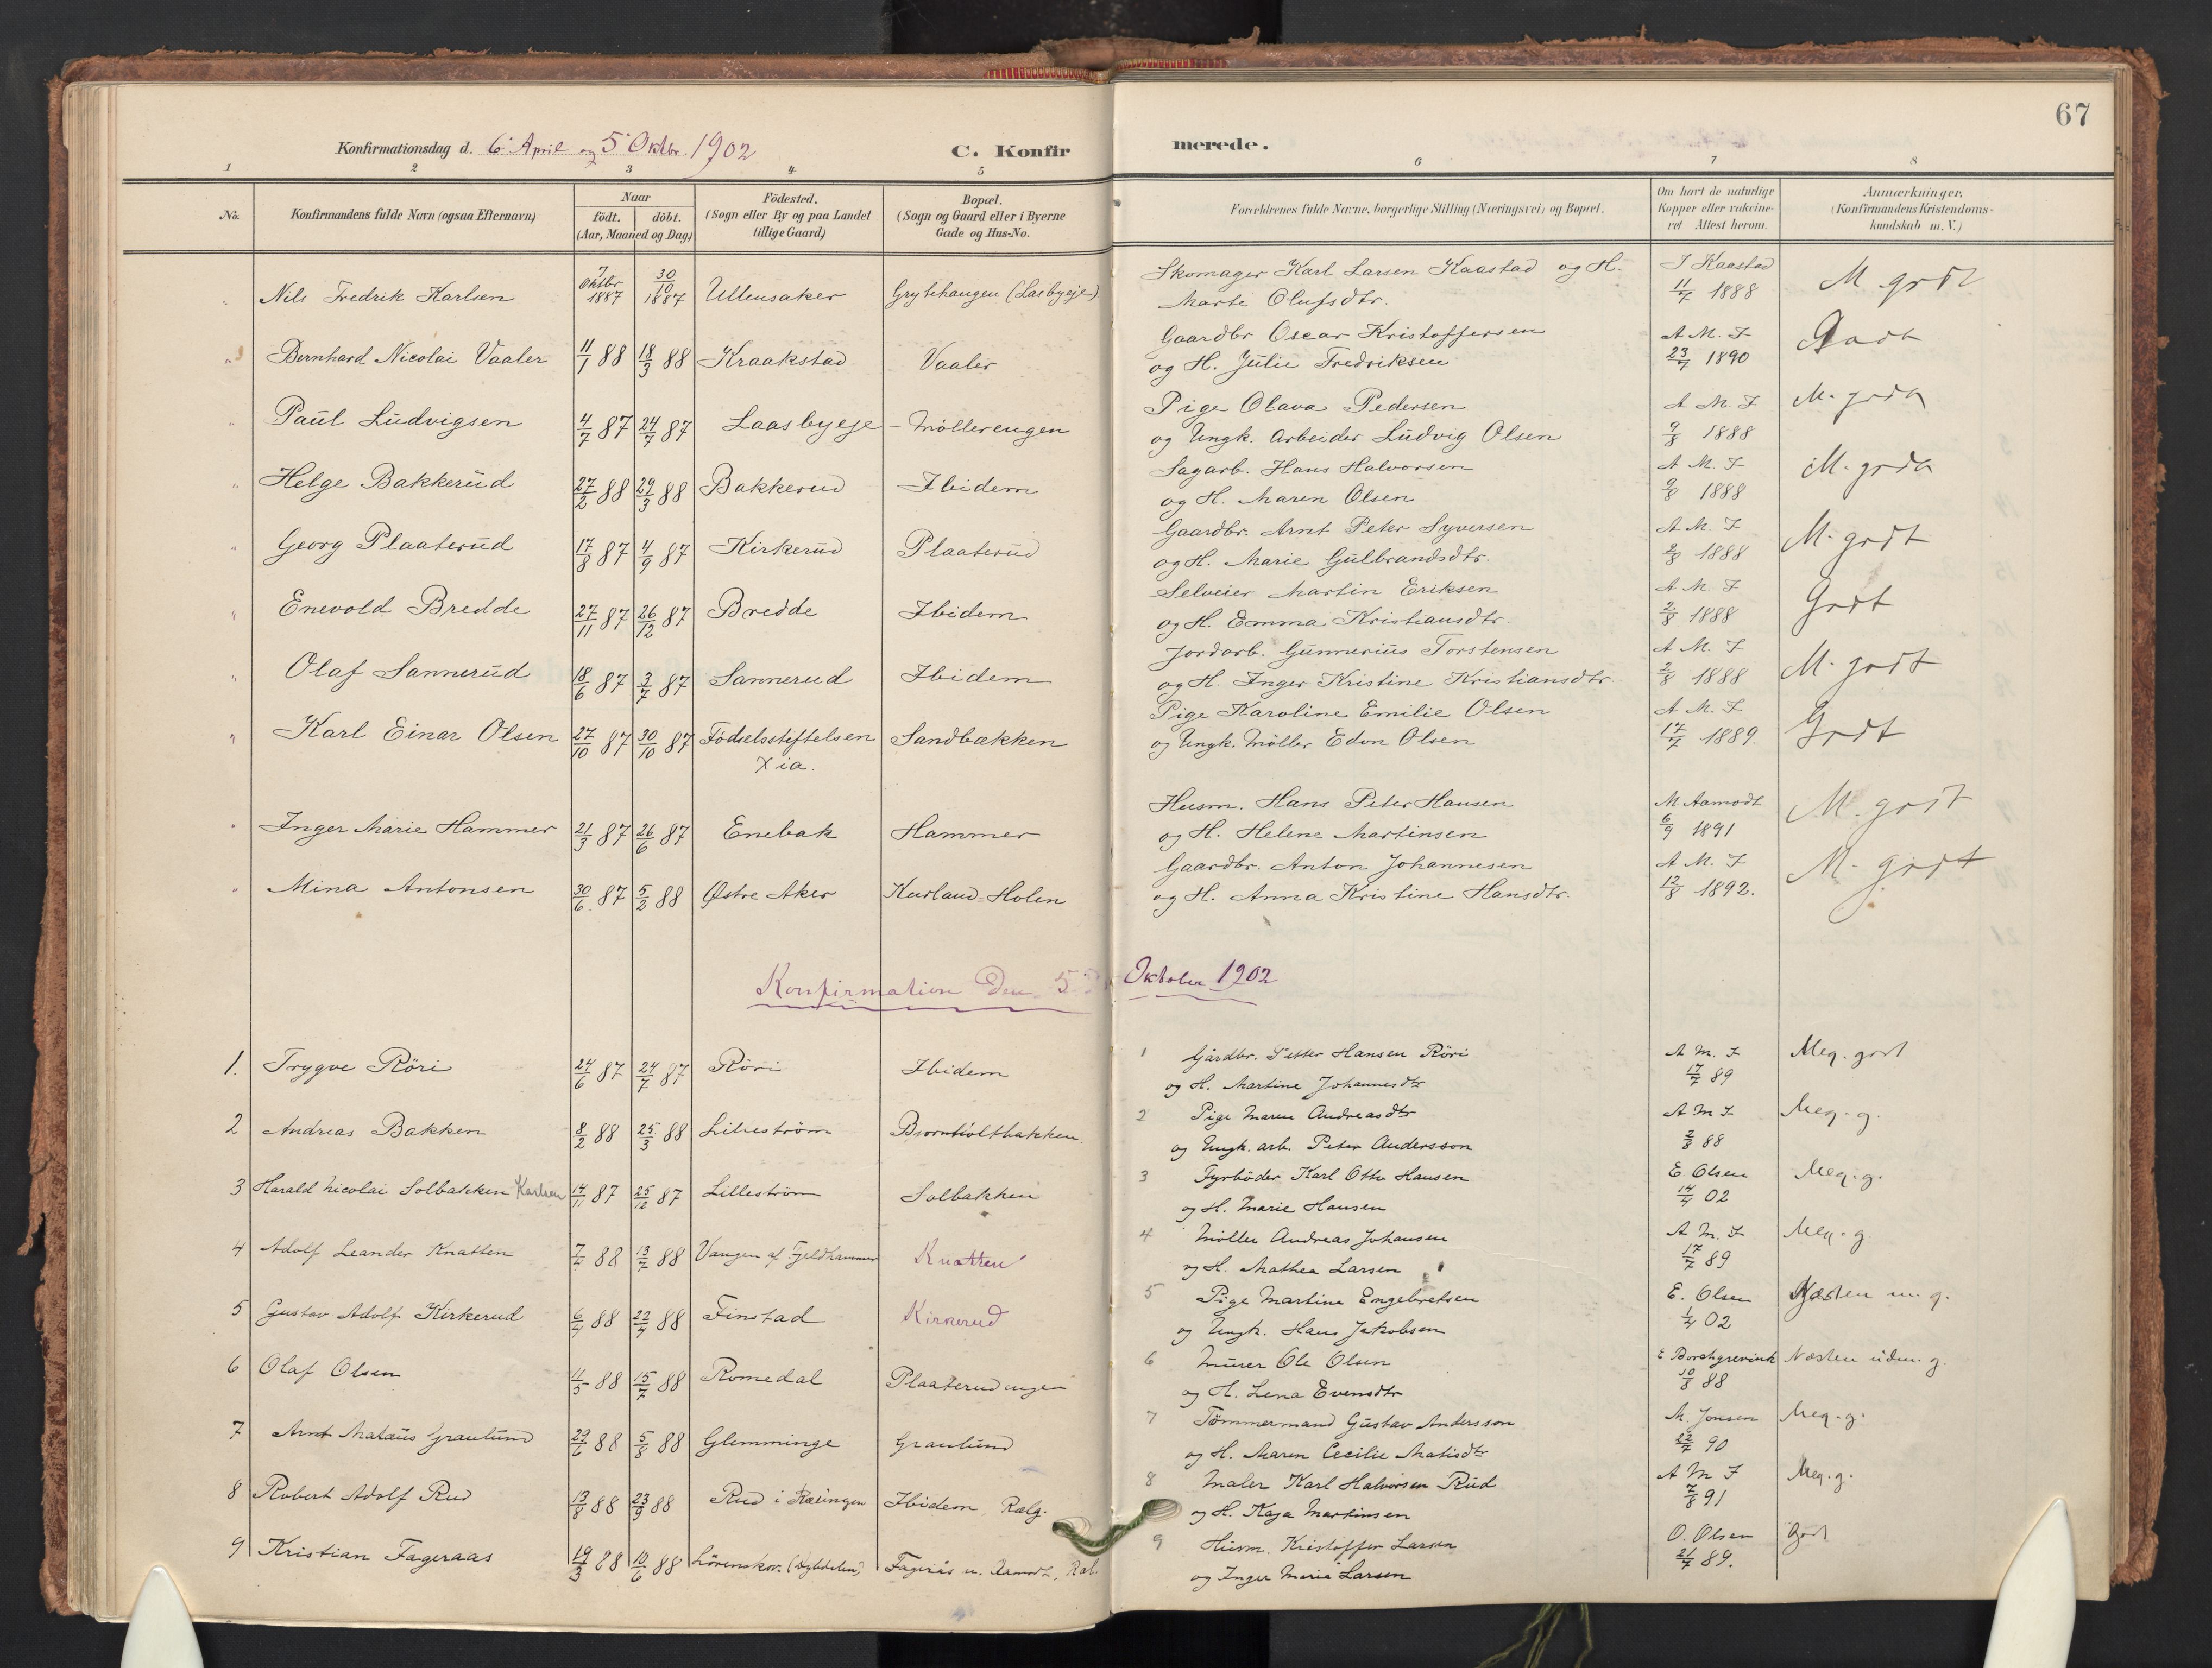 67
Konfirmationsdag d. 6. April og 5 Oktbr. 1902 C. Konfirmerede.
1 2 3 4 5 6 7 8
No. Konfirmandens fulde Navn (ogsaa Efternavn) Naar født. døbt. (Aar, Maaned og Dag) Fødested. (Sogn eller By og paa Landet tillige Gaard) Bopæl. (Sogn og Gaard eller i Byerne Gade og Hus-No. Forældrenes fulde Navne, borgerlige Stilling (Næringsvei) og Bopæl. Om havt de naturlige Kopper eller vakcineret Attest herom. Anmærkninger. (Konfirmandens Kristendomskundskab m.V.)
" Nils Fredrik Karlsen 7 Oktbr 1887 30/10 1887 Ullensaker Grythengen (Lasbyeje) Skomager Karl Larsen Kaastad og H. J Kaastad M godt
Marte Olufsdtr. 11/7 1888
" Bernhard Nicolai Vaaler 11/1 88 18/3 88 Kraakstad Vaaler Gaardbr Oscar Kristoffersen A M. J Godt
og H. Julie Fredriksen 23/7 1890
" Paul Ludvigsen 4/7 87 24/7 87 Laasbyeje - Möllerengen Pige Olava Pedersen A M. J M. godt
og Ungk. Arbeider Ludvig Olsen 9/8 1888
" Helge Bakkerud 27/2 88 29/3 88 Bakkerud Ibidem Sagarb. Hans Halvorsen A M. J M. godt
og H. Maren Olsen 9/8 1888
" Georg Plaaterud 17/8 87 4/9 87 Kirkerud Plaaterud Gaardbr. Arnt Peter Syversen A M. J M. godt
og H. Marie Gulbrandsdtr. 2/8 1888
" Enevold Bredde 27/11 87 26/12 87 Bredde Ibidem Selveier Martin Eriksen A M. J Godt
og H. Emma Kristiansdtr. 2/8 1888
" Olaf Sannerud 18/6 87 3/7 87 Sannerud Ibidem Jordarb. Gunnerius Torstensen A M. J M. godt
og H. Inger Kristine Kristiansdtr 2/8 1888
" Karl Einar Olsen 27/10 87 30/10 87 Födselsstiftelsen Xia. Sandbækken Pige Karoline Emilie Olsen A M. J Godt
og Ungk. Möller Edon Olsen 17/7 1889.
" Inger Marie Hammer 21/3 87 26/6 87 Enebak Hammer Husm. Hans Peter Hansen M Aamodt M. godt
og H. Helene Martinsen 6/9 1891
" Mina Antonsen 30/6 87 5/2 88 Østre Aker Kurland-Holen Gaardbr. Anton Johannesen A M. J M. godt
og H. Anna Kristine Hansdtr. 12/8 1892.
Konfirmation Den 5 Oktober 1902
1. Trygve Röri 24/6 87 24/7 87 Röri Ibidem 1 Gårdbr. Petter Hansen Röri A M. J Meg. godt
og H. Martine Johannesdtr 17/7 89
2 Andreas Bakken 8/2 88 25/3 88 Lilleström Bjornholtbakken 2 Pige Maren Andreasdtr A M J Meg. g.
og Ungk. arb. Peter Andersson 2/8 88
3 Harald Nicolai Solbakken Karlsen 14/11 87 25/12 87 Lilleström Solbakken 3 Fyrböder Karl Otto Hansen E Olsen Meg. g.
og H. Marie Hansen 14/4 02
4 Adolf Leander Knatten 7/4 88 13/7 88 Vangen af Fjeldhammer Knatten 4 Möller Andreas Johansen A M. J Meg. g.
og H. Mathea Larsen 17/7 89
5 Gustav Adolf Kirkerud 6/4 88 22/4 88 Finstad Kirkerud 5 Pige Martine Engebretsen E. Olsen Næsten m. g.
og Ungk. Hans Jakobsen 1/4 02
6 Olaf Olsen 11/5 88 15/7 88 Romedal Plaaterudengen 6 Murer Ole Olsen E Borchgrevink Næsten uden. g.
og H. Lena Evensdtr 10/8 88
7 Arnt Matæus Granlund 29/6 88 5/8 88 Glemminge Granlund 7 Tömmermand Gustav Andersson M. Jonsen Meg. g.
og H. Maren Cecilie Matisdtr 22/7 90
8 Robert Adolf Rud 13/8 88 23/9 88 Rud i Rælingen Ibidem Rælg. 8 Maler Karl Halvorsen Rud A M J Meg. g.
og H. Kaja Martinsen 7/8 91
9 Kristian Fageraas 19/3 88 10/6 88 Lörenskov. Fagerås u. Aamodt, Ræl. 9 Husm. Kristoffer Larsen O. Olsen Godt
og Inger Marie Larsen 21/7 89.